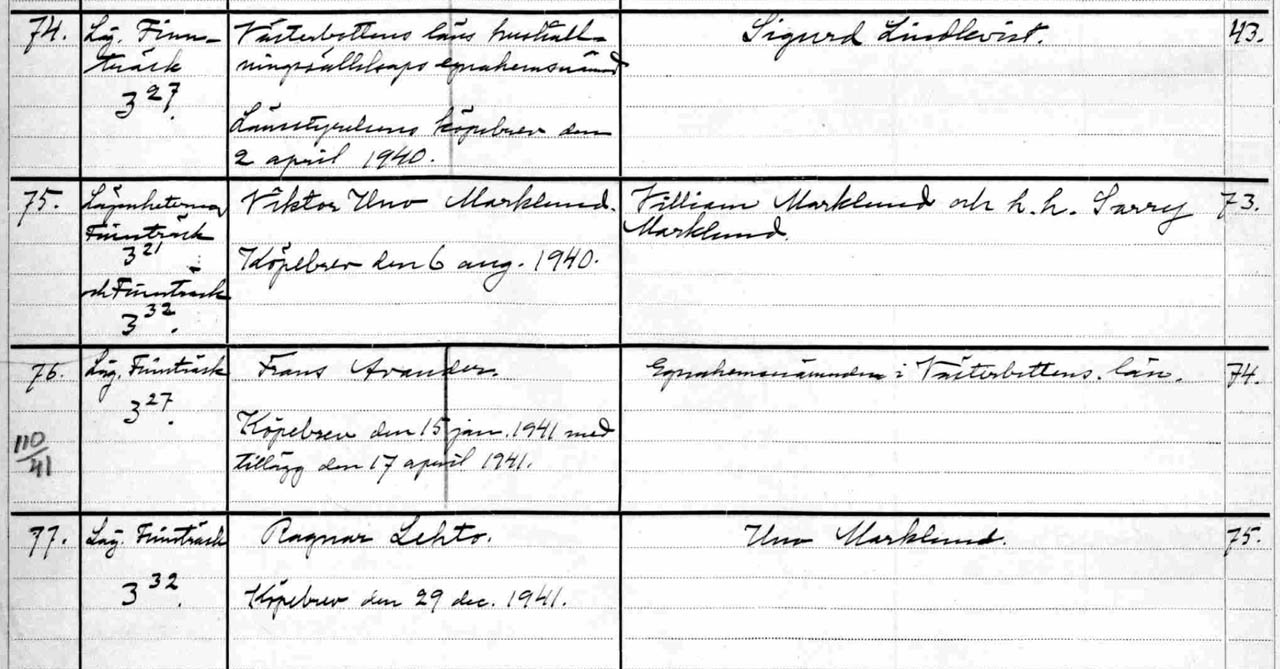 74.
Läg. Finn-
träsk
3 27.
Västerbottens läns hushåll-
ningssällskaps egnahemsnämnd
Länsstyrelsens köpebrev den
2 april 1940.
Sigurd Lindkvist.
43.
75.
Lägenheterna
Finnträsk
3 21
och Finnträsk
3 32.
Viktor Uno Marklund.
Köpebrev den 6 aug. 1940.
Villiam Marklund och h. h. Sarry
Marklund.
73.
76.
110/41
Läg. Finnträsk
3 27.
Frans Avander.
Köpebrev den 15 jan. 1941 med
tillägg den 17 april 1941.
Egnahemsnämnden i Västerbottens. län.
74.
77.
Läg. Finnträsk
3 32.
Ragnar Lehto.
Köpebrev den 29 dec. 1941.
Uno Marklund.
75.